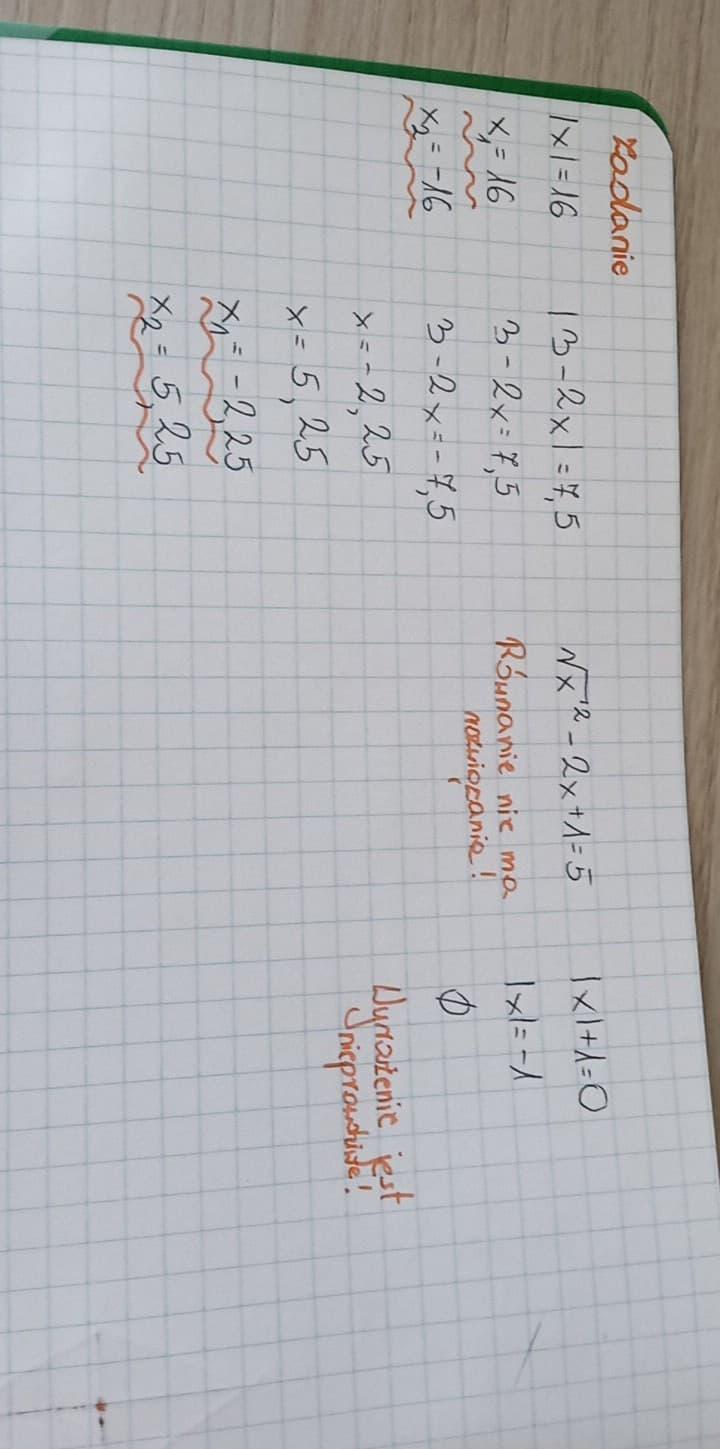 Zadanie
|x|=16
x₁=16
x₂=-16
|3-2x|=7,5
3-2x=7,5
3-2x=-7,5
x=-2,25
x=5,25
x₁=-2,25
x₂=5,25
√x²-2x+1=5
Równanie nie ma
rozwiązania!
|x|+1=0
|x|=-1
∅
Wyrażenie jest
nieprawdziwe!